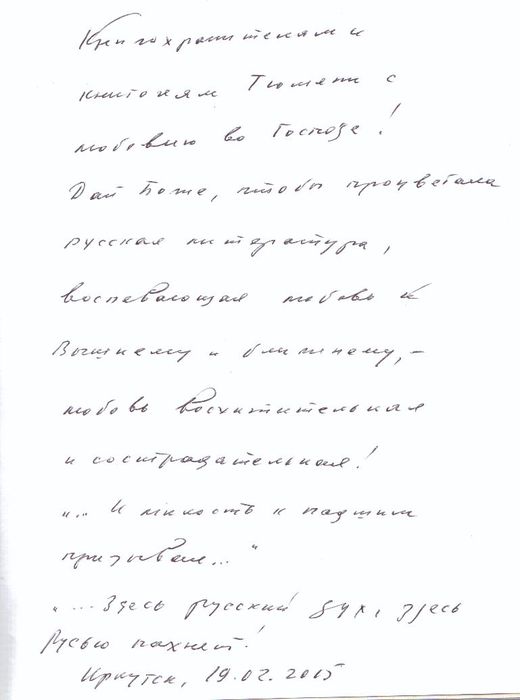 Книгохранителям и
книгочеям Тюмени с
любовию во Господе!
Дай Боже, чтобы процветала
русская литература,
воспевающая любовь к
Вышнему и ближнему, –
любовь восхитительная
и сострадательная!
"... И милость к падшим
призывал..."
"... Здесь русский дух, здесь
Русью пахнет!
Иркутск, 19.02.2015